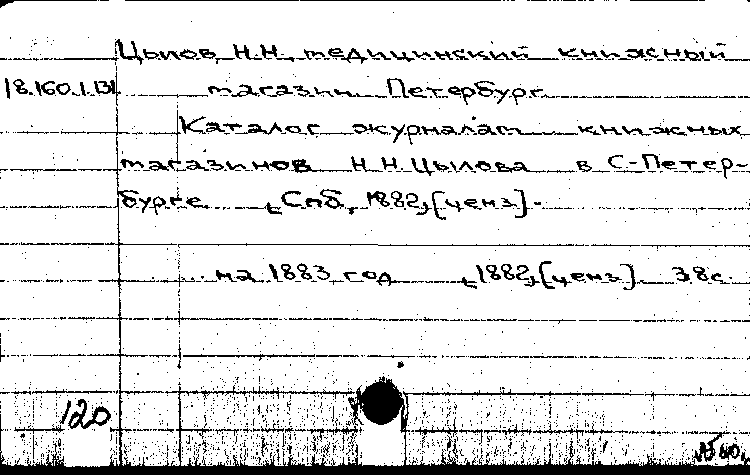 Цылов, Н.Н., медицинский книжный
18.160.1.131 магазин. Петербург.
Каталог журналам книжных
магазинов Н.Н.Цылова в С-Петер-
бурге. [Спб, 1882, [ценз].-
... на 1883 год [1882, [ценз] 38с.
120